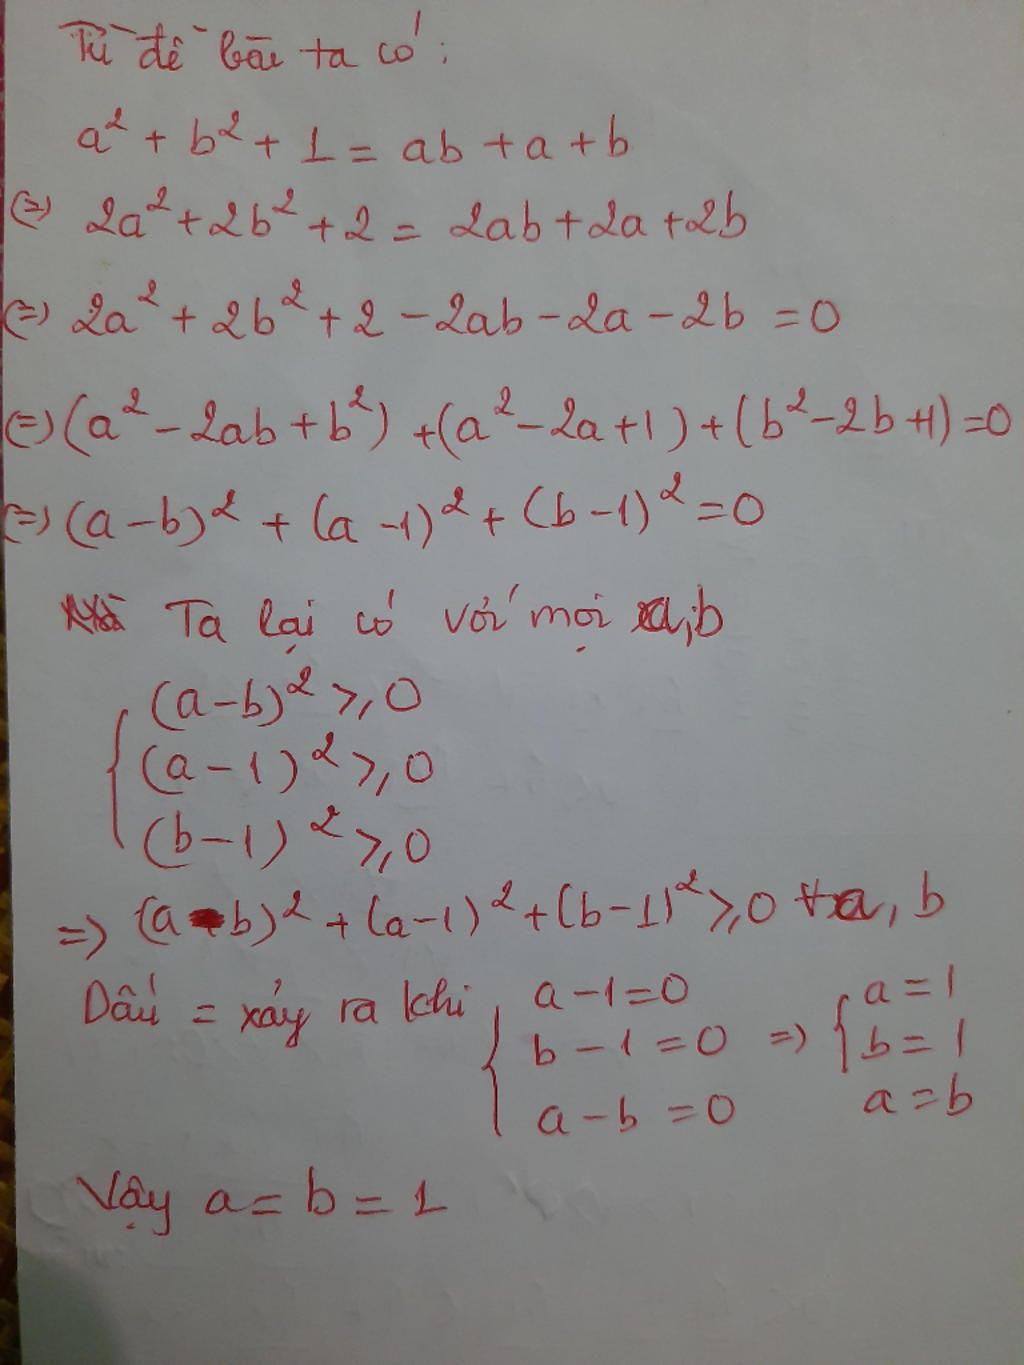 Từ đề bài ta có:
a² + b² + 1 = ab + a + b
(=) 2a² + 2b² + 2 = 2ab + 2a + 2b
(=) 2a² + 2b² + 2 - 2ab - 2a - 2b = 0
(=) (a² - 2ab + b²) + (a² - 2a + 1) + (b² - 2b + 1) = 0
(=) (a - b)² + (a - 1)² + (b - 1)² = 0
Ta lại có với mọi a, b
(a - b)² ≥ 0
(a - 1)² ≥ 0
(b - 1)² ≥ 0
=> (a - b)² + (a - 1)² + (b - 1)² ≥ 0 ∀ a, b
Dấu = xảy ra khi { a - 1 = 0 { a = 1
b - 1 = 0 => b = 1
a - b = 0 a = b
Vậy a = b = 1